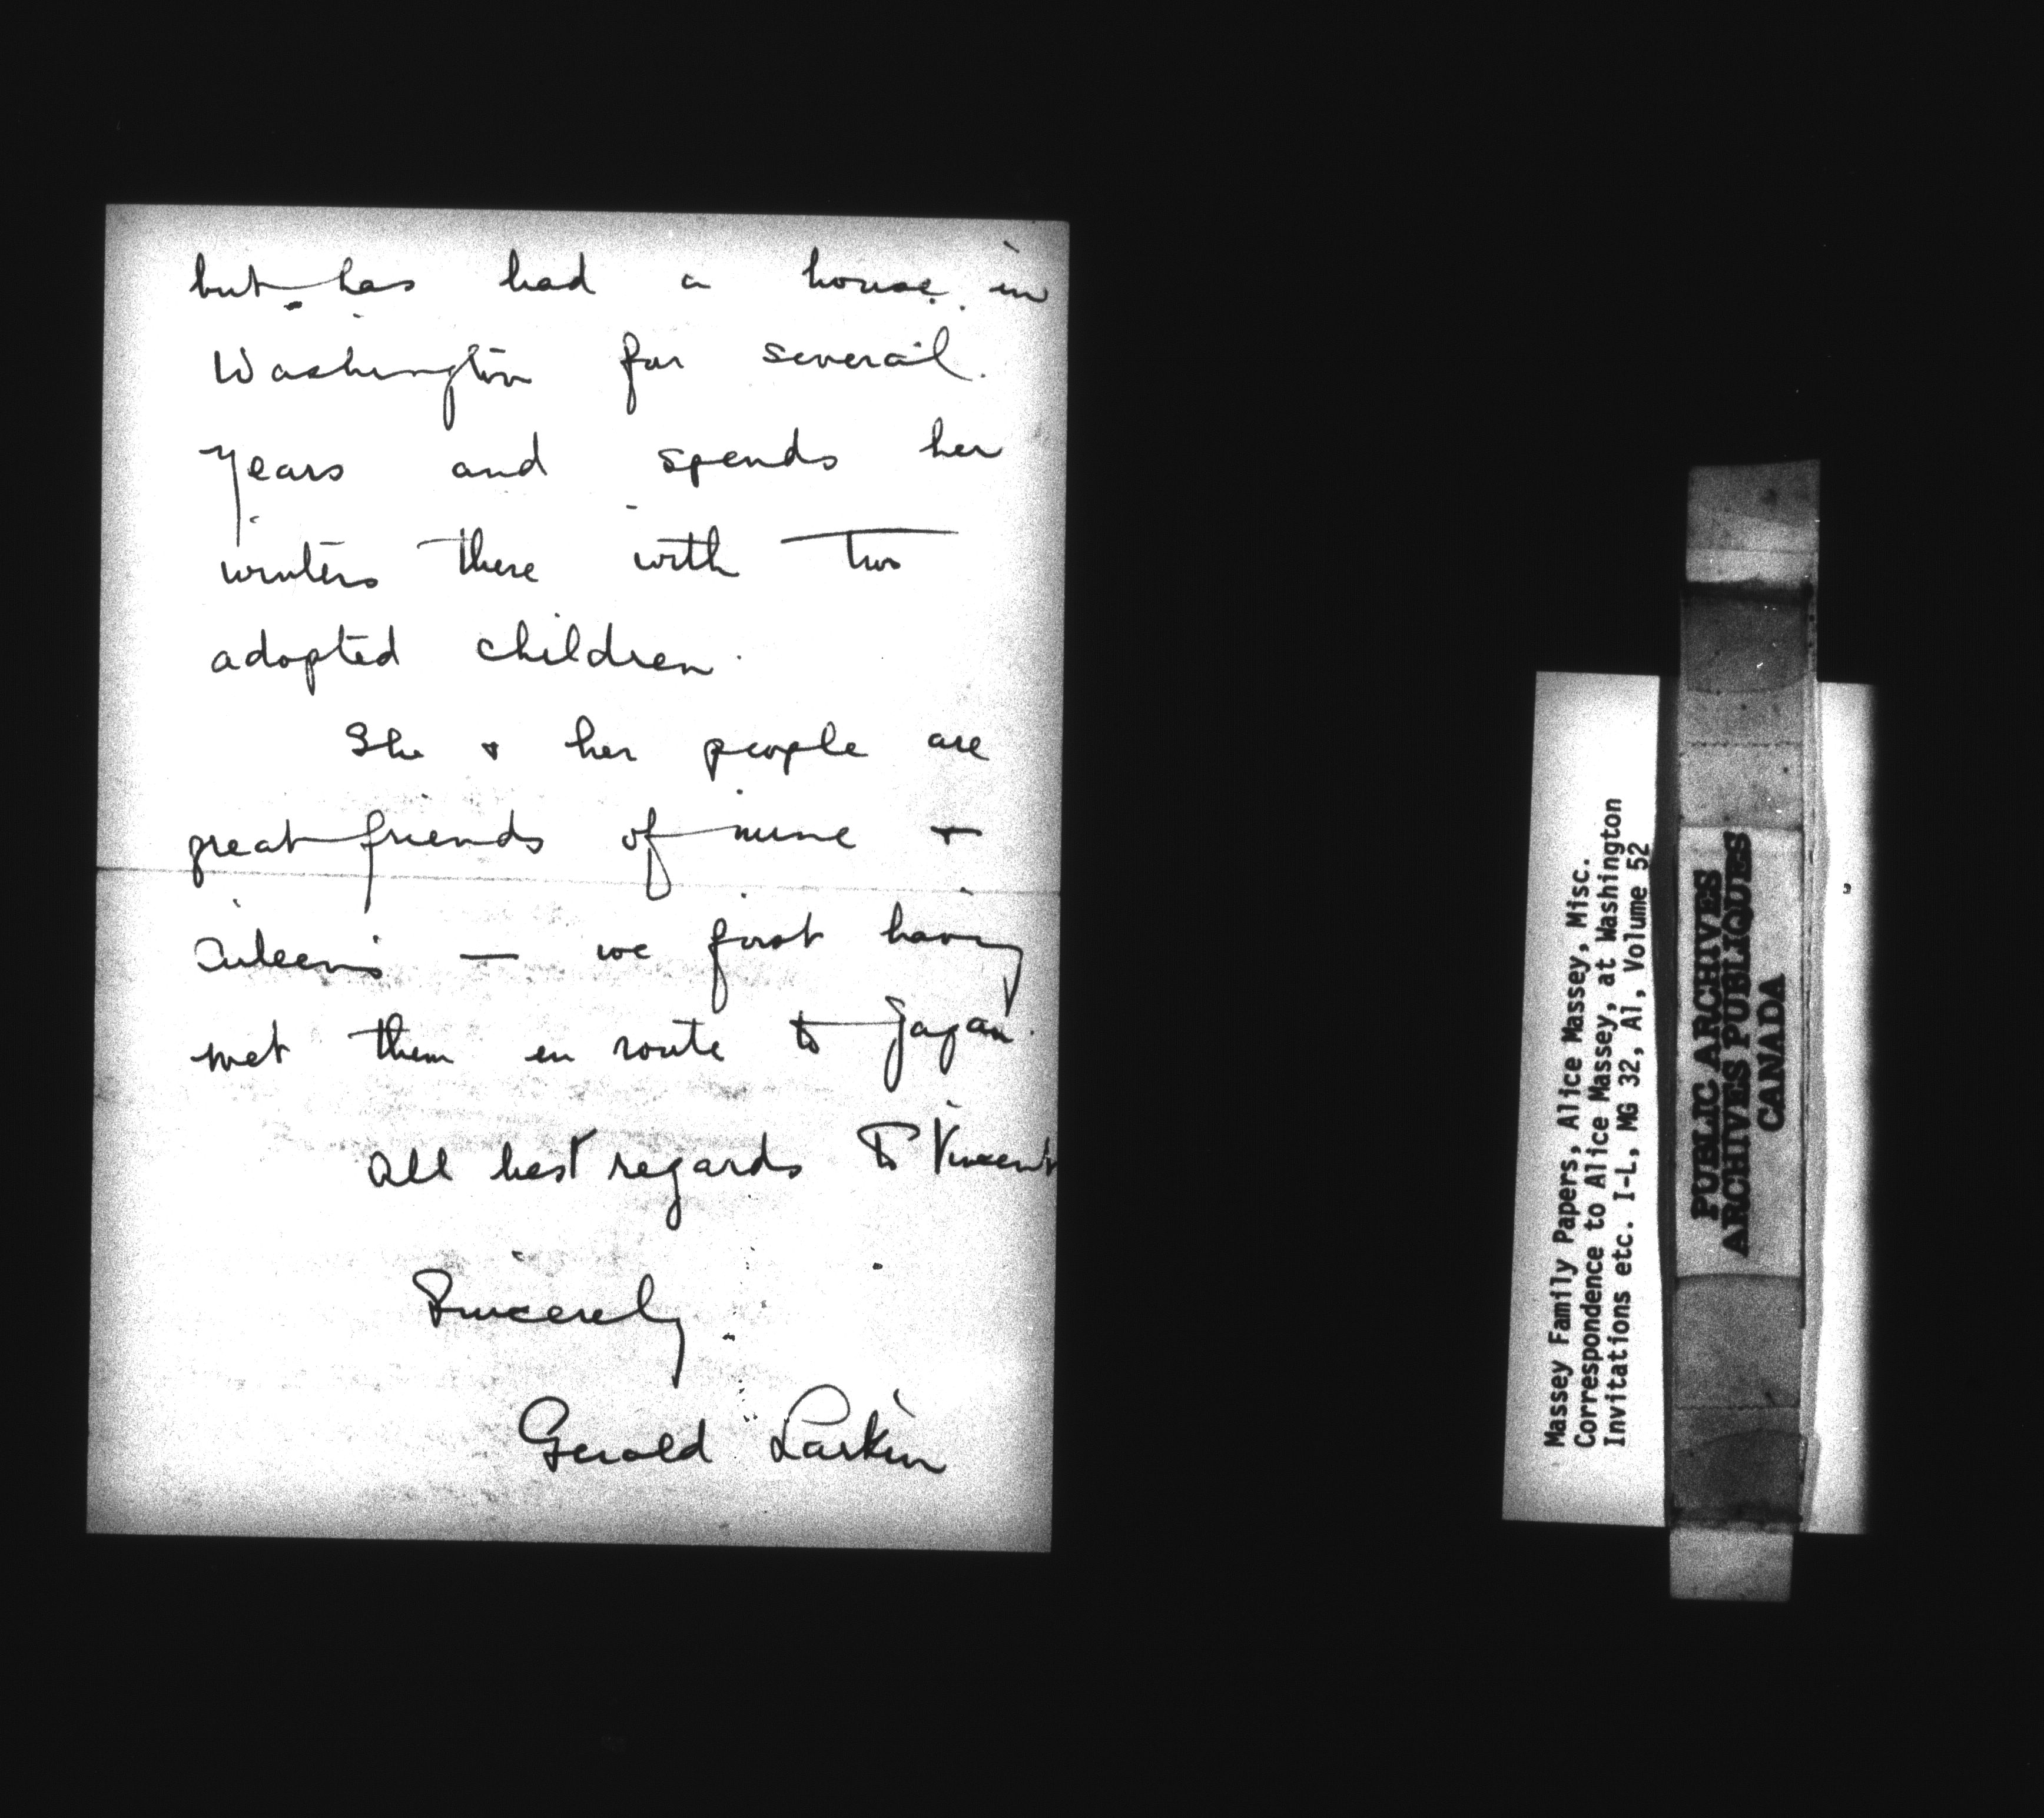 but has had a house in
Washington for several
years and spends her
winters there with two
adopted children.
She & her people are
great friends of mine &
Aileen's — we first having
met them en route to Japan.
All best regards to Vincent
Sincerely
Gerald Larkin
Massey Family Papers, Alice Massey, Misc.
Correspondence to Alice Massey, at Washington
Invitations etc. I-L, MG 32, A1, Volume 52
PUBLIC ARCHIVES
ARCHIVES PUBLIQUES
CANADA